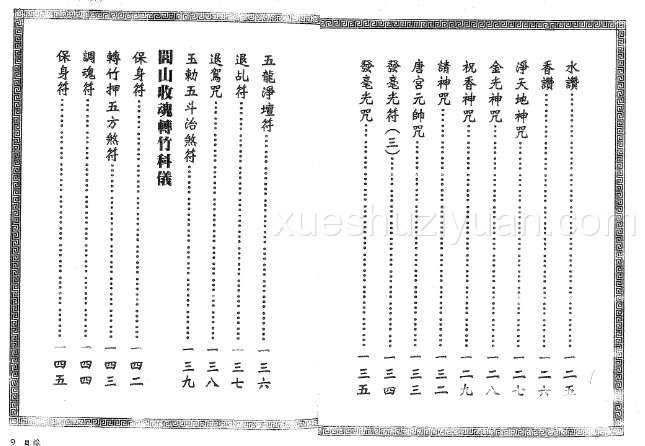 水讚⋯⋯一二五
香讚⋯⋯一二六
淨天地神咒⋯⋯一二七
金光神咒⋯⋯一二八
祝香神咒⋯⋯一二九
請神咒⋯⋯一三二
唐宮元帥咒⋯⋯一三三
發毫光符(三)⋯⋯一三四
發毫光咒⋯⋯一三五
五龍淨壇符⋯⋯一三六
退乩符⋯⋯一三七
退駕咒⋯⋯一三八
玉勅五斗治煞符⋯⋯一三九
閭山收魂轉竹科儀
保身符⋯⋯一四二
轉竹押五方煞符⋯⋯一四三
調魂符⋯⋯一四四
保身符⋯⋯一四五
9 目錄
xueshuziyuan.com